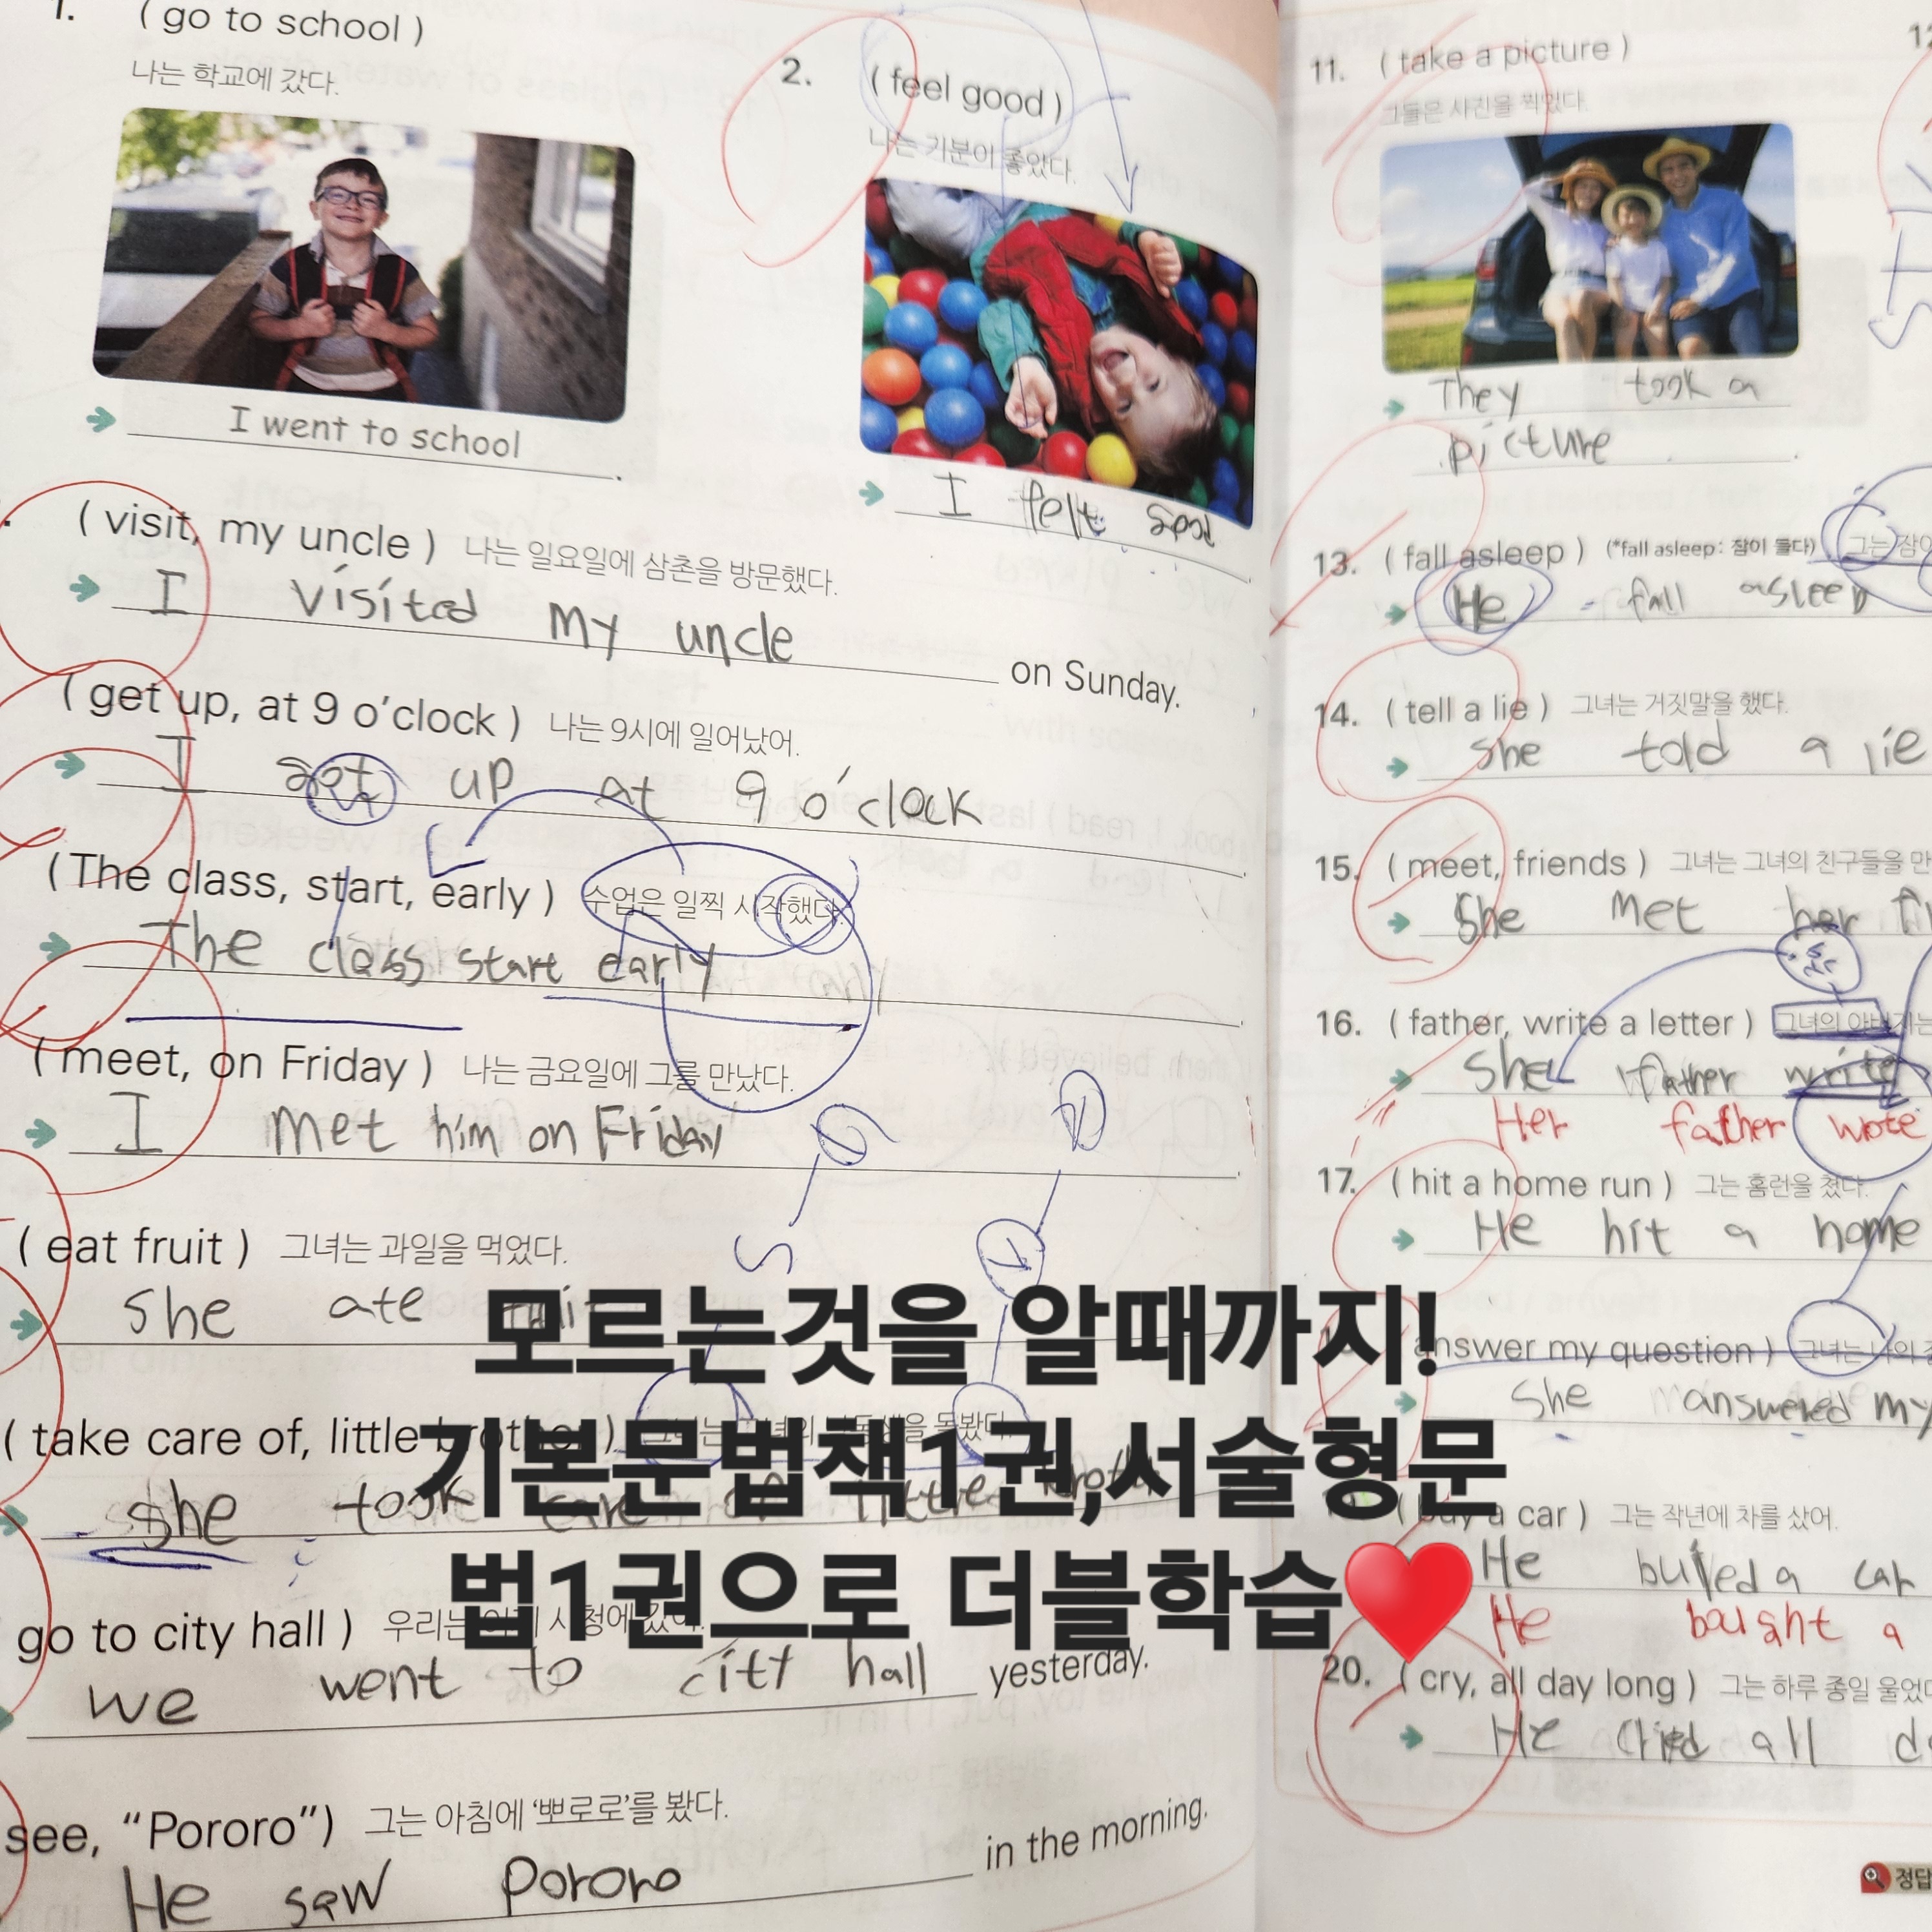 1. ( go to school )
나는 학교에 갔다.
I went to school
2. ( feel good )
나는 기분이 좋았다.
I felt good
( visit, my uncle ) 나는 일요일에 삼촌을 방문했다.
I visited my uncle on Sunday.
( get up, at 9 o'clock ) 나는 9시에 일어났어.
I got up at 9 o'clock
( The class, start, early ) 수업은 일찍 시작했다.
The class start early
( meet, on Friday ) 나는 금요일에 그를 만났다.
I met him on Friday
( eat fruit ) 그녀는 과일을 먹었다.
She ate
( take care of, little brother ) 돌봤다.
She took care of little
go to city hall ) 우리는 시청에 갔어.
we went to city hall yesterday.
see, “Pororo”) 그는 아침에 ‘뽀로로’를 봤다.
He saw Pororo in the morning.
11. ( take a picture )
그들은 사진을 찍었다.
They took a
picture
13. ( fall asleep ) (*fall asleep: 잠이 들다) 그는
He fall asleep
14. ( tell a lie ) 그녀는 거짓말을 했다.
She told a lie
15. ( meet, friends ) 그녀는 그녀의 친구들을
She met her
16. ( father, write a letter ) 그녀의
She father write
Her father wote
17. ( hit a home run ) 그는 홈런을 쳤다.
He hit a home
answer my question ) 그녀는 나의
She answered my
( buy a car ) 그는 작년에 차를 샀어.
He a car
He bought a
20. ( cry, all day long ) 그는 하루 종일 울었다
He cried all
정답
모르는것을 알때까지!
기본문법책1권,서술형문
법1권으로 더블학습❤️